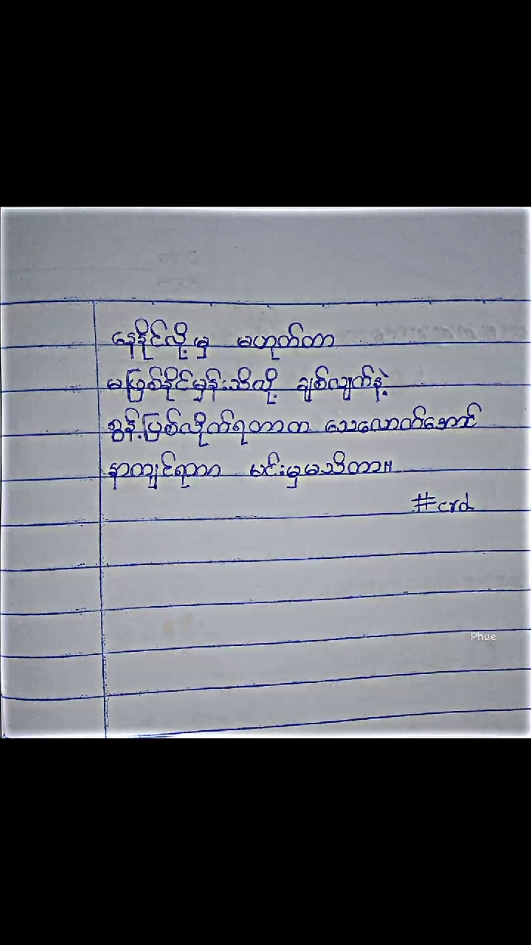 နေနိုင်လို့မှ မဟုတ်တာ
မဖြစ်နိုင်မှန်းသိလို့ ချစ်လျက်နဲ့
စွန့်ပြစ်လိုက်ရတာက သေလောက်အောင်
နာကျင်ရတာ မင်းမှမသိတာ။
#crd
Phue